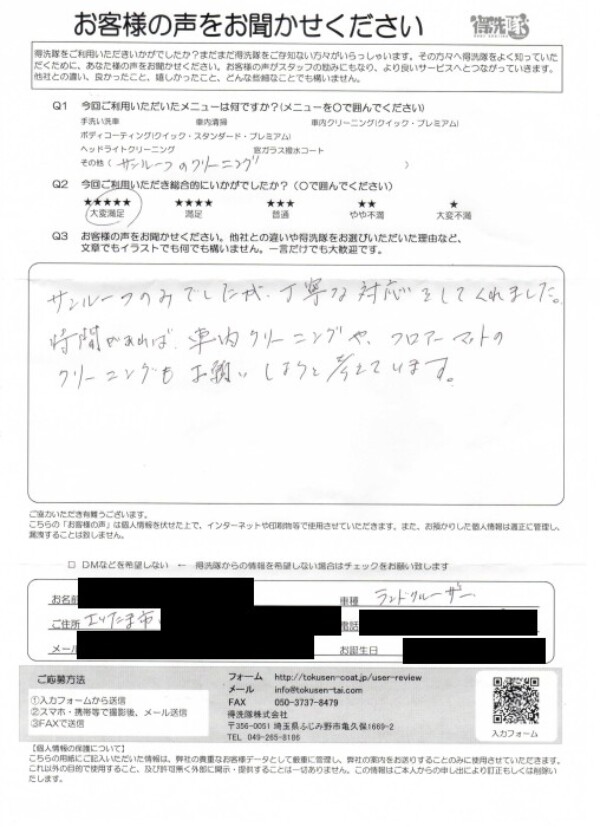 お客様の声をお聞かせください
得洗隊
得洗隊をご利用いただきいかがでしたか?まだまだ得洗隊をご存知ない方々がいらっしゃいます。その方々へ得洗隊をよく知っていた
だくために、あなた様の声をお聞かせください。お客様の声がスタッフの励みにもなり、より良いサービスへとつながっていきます。
他社との違い、良かったこと、嬉しかったこと、どんな些細なことでも構いません。
Q1 今回ご利用いただいたメニューは何ですか?(メニューを〇で囲んでください)
手洗い洗車 車内清掃 車内クリーニング(クイック・プレミアム)
ボディコーティング(クイック・スタンダード・プレミアム)
ヘッドライトクリーニング 窓ガラス撥水コート
その他( サンルーフのクリーニング )
Q2 今回ご利用いただき総合的にいかがでしたか?(〇で囲んでください)
★★★★★ ★★★★ ★★★ ★★ ★
大変満足 満足 普通 やや不満 大変不満
Q3 お客様の声をお聞かせください。他社との違いや得洗隊をお選びいただいた理由など、
文章でもイラストでも何でも構いません。一言だけでも大歓迎です。
サンルーフのみでしたが、丁寧な対応をしてくれました。
時間があれば、車内クリーニングや、フロアーマットの
クリーニングもお願いしようと考えています。
ご協力いただき有難うございます。
こちらの「お客様の声」は個人情報を伏せた上で、インターネットや印刷物等で使用させていただきます。また、お預かりした個人情報は適正に管理し、
漏洩することは致しません。
□ DMなどを希望しない ← 得洗隊からの情報を希望しない場合はチェックをお願い致します
お名前 車種 ランドクルーザー
ご住所 さいたま市 電話
メール お誕生日
ご応募方法
①入力フォームから送信
②スマホ・携帯等で撮影後、メール送信
③FAXで送信
フォーム http://tokusen-coat.jp/user-review
メール info@tokusen-tai.com
FAX 050-3737-8479
得洗隊株式会社
〒356-0051 埼玉県ふじみ野市亀久保1669-2
TEL 049-265-8186
入力フォーム
【個人情報の保護について】
こちらの用紙にご記入いただいた情報は、弊社の貴重なお客様データとして厳重に管理し、弊社の案内をお送りすることのみに使用させていただきます。
これ以外の目的で使用すること、及び許可無く外部に開示・提供することは一切ありません。この情報はご本人からの申し出により訂正もしくは削除い
たします。